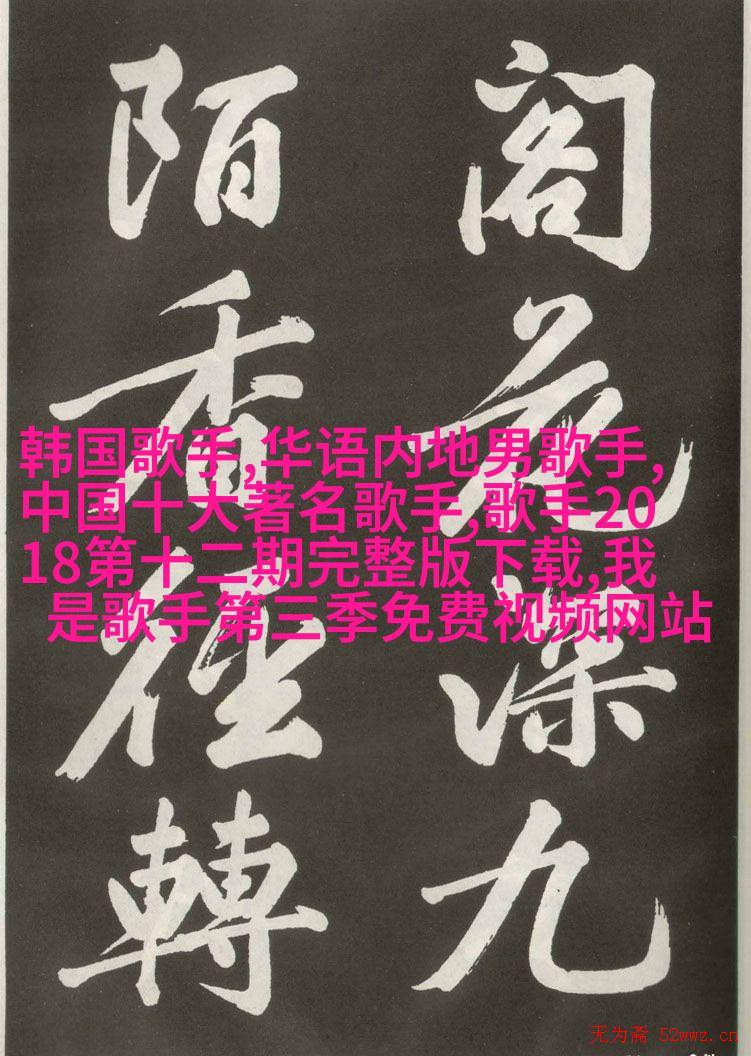 阁花深九
陌香径轉
韩国歌手,华语内地男歌手,
中国十大著名歌手,歌手20
18第十二期完整版下载,我
是歌手第三季免费视频网站
无为斋 52wwz.cn